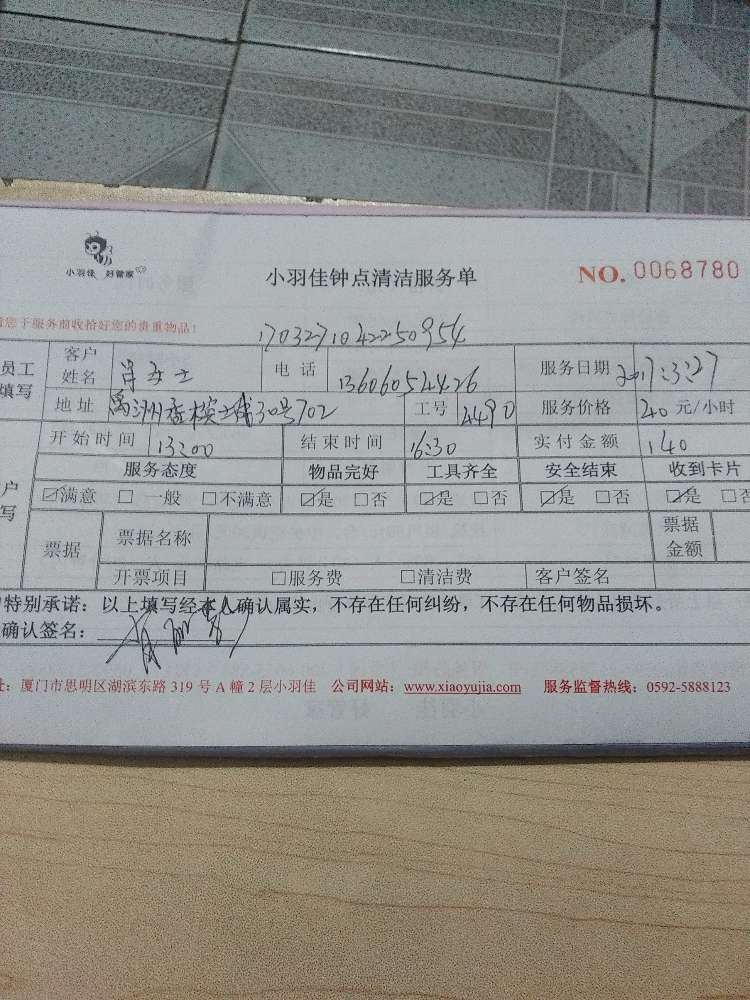 小羽佳 好管家
小羽佳钟点清洁服务单 NO. 0068780
您于服务前收拾好您的贵重物品!
170327104225095
员工填写 客户姓名 肖女士 电话 13606054426 服务日期 2017:3:27
地址 禹洲 30号702 工号 4490 服务价格 40 元/小时
开始时间 13:00 结束时间 16:30 实付金额 140
户写 服务态度 物品完好 工具齐全 安全结束 收到卡片
☑满意 □ 一般 □不满意 ☑是 □否 ☑是 □否 ☑是 □否 ☑是 □否
票据 票据名称 票据金额
开票项目 □服务费 □清洁费 客户签名
特别承诺：以上填写经本人确认属实，不存在任何纠纷，不存在任何物品损坏。
确认签名：
址：厦门市思明区湖滨东路 319 号 A 幢 2 层小羽佳 公司网站：www.xiaoyujia.com 服务监督热线：0592-5888123